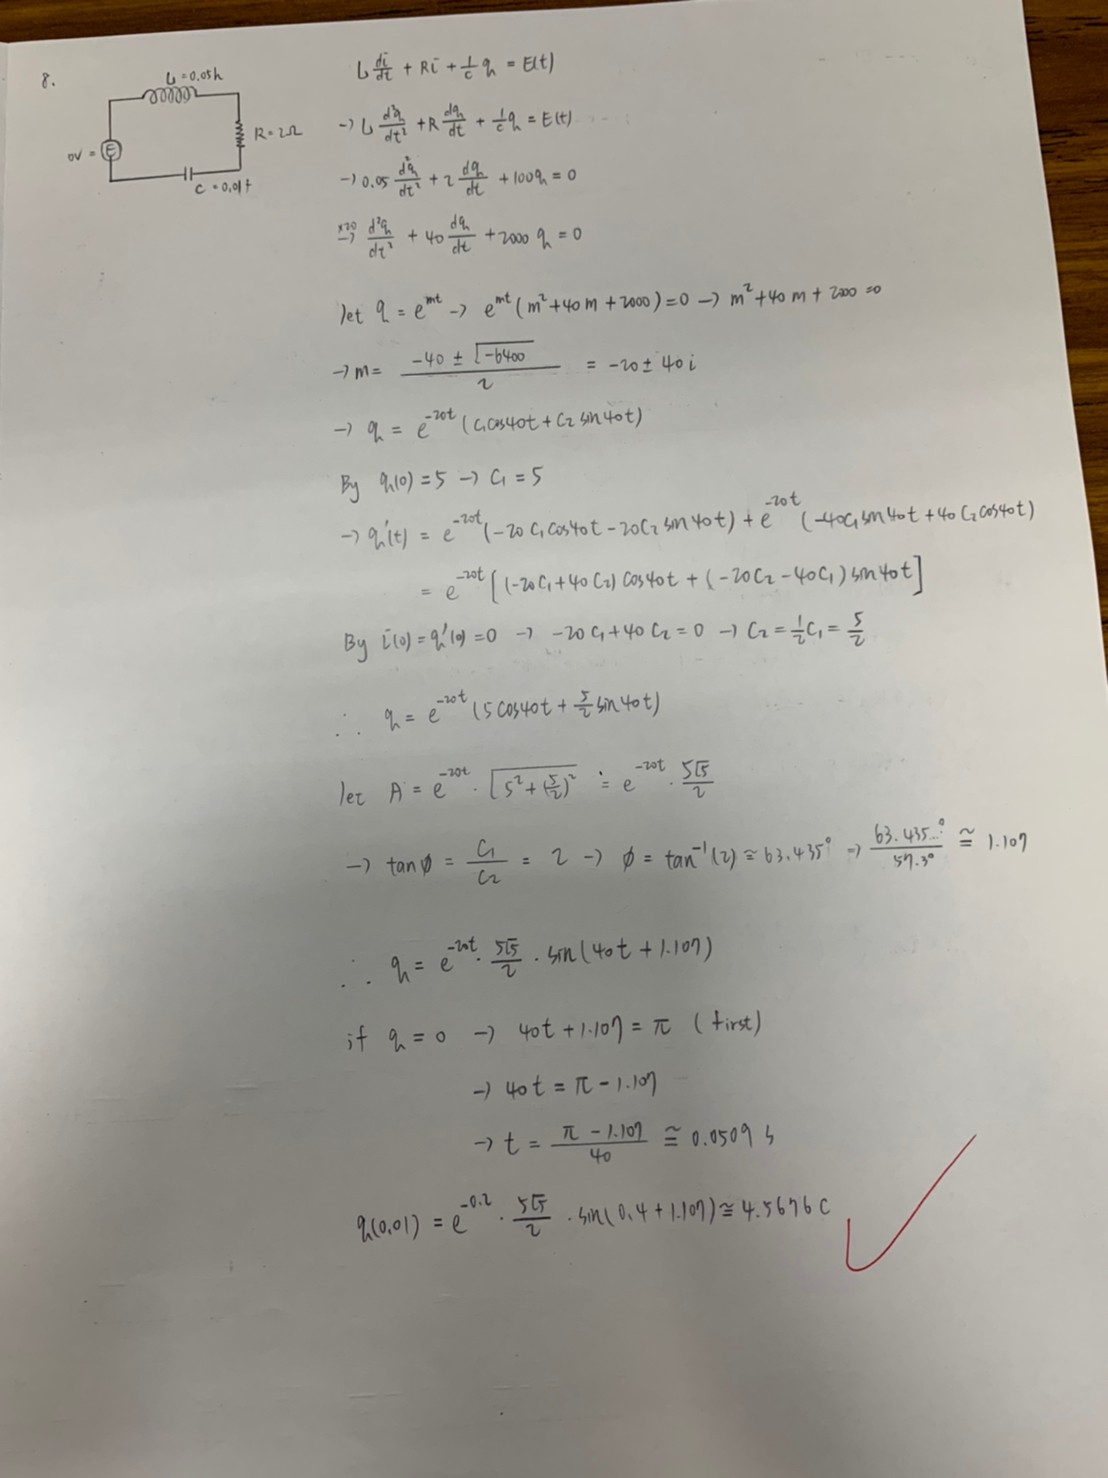 8.
L = 0.05h
R = 2Ω
0V = E
C = 0.01f
L di/dt + Ri + 1/c q = E(t)
→ L d²q/dt² + R dq/dt + 1/c q = E(t)
→ 0.05 d²q/dt² + 2 dq/dt + 100q = 0
×20 → d²q/dt² + 40 dq/dt + 2000 q = 0
let q = e^mt → e^mt (m² + 40m + 2000) = 0 → m² + 40m + 2000 = 0
→ m = (-40 ± √-6400)/2 = -20 ± 40i
→ q = e^-20t (C₁cos40t + C₂ sin40t)
By q(0) = 5 → C₁ = 5
→ q'(t) = e^-20t (-20C₁cos40t - 20C₂ sin40t) + e^-20t (-40C₁sin40t + 40C₂cos40t)
= e^-20t [(-20C₁ + 40C₂) cos40t + (-20C₂ - 40C₁) sin40t]
By i(0) = q'(0) = 0 → -20C₁ + 40C₂ = 0 → C₂ = 1/2 C₁ = 5/2
∴ q = e^-20t (5cos40t + 5/2 sin40t)
let A = e^-20t · √(5² + (5/2)²) = e^-20t · 5√5/2
→ tanφ = C₁/C₂ = 2 → φ = tan⁻¹(2) ≅ 63.435° → 63.435...°/57.3° ≅ 1.107
∴ q = e^-20t · 5√5/2 · sin(40t + 1.107)
if q = 0 → 40t + 1.107 = π (first)
→ 40t = π - 1.107
→ t = (π - 1.107)/40 ≅ 0.0509 s
q(0.01) = e^-0.2 · 5√5/2 · sin(0.4 + 1.107) ≅ 4.5676 C